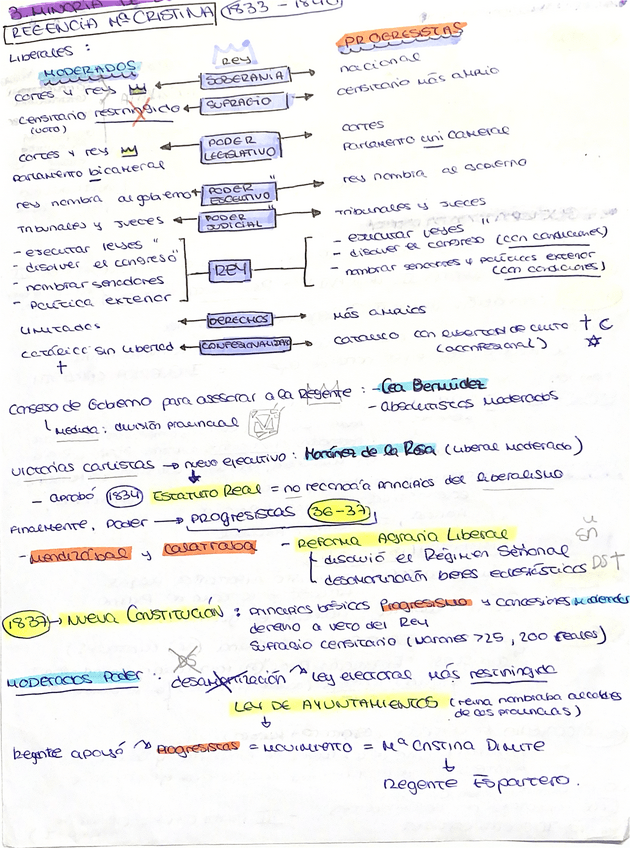 3. MINORÍA DE
REGENCIA Mª CRISTINA (1833 - 1840)
LIBERALES :
MODERADOS REY PROGRESISTAS
CORTES Y REY SOBERANÍA nacional
CENSITARIO restringido (voto) SUFRAGIO CENSITARIO MÁS AMPLIO
CORTES Y REY PODER LEGISLATIVO CORTES
PARLAMENTO bicameral PARLAMENTO uni cameral
rey nombra al gobierno PODER EJECUTIVO" rey nombra al gobierno
Tribunales y jueces PODER JUDICIAL" Tribunales y jueces
- ejecutar leyes " REY - ejecutar leyes "
- disolver el congreso" - disolver el congreso (con condiciones)
- nombrar senadores - nombrar senadores y política exterior
- Política exterior (con condiciones)
Limitados DERECHOS MÁS AMPLIOS
CATÓLICO sin libertad CONFESIONALIDAD CATÓLICO CON LIBERTAD DE CULTO
(aconfesional)
Consejo de Gobierno para asesorar a la Regente : - Cea Bermúdez
- absolutistas moderados
Medida : división provincial
Victorias carlistas → nuevo ejecutivo : Martínez de la Rosa (liberal moderado)
- aprobó 1834 ESTATUTO Real = no reconocía principios del liberalismo
Finalmente, Poder → PROGRESISTAS 36-37
- Mendizábal y Calatrava - REFORMA AGRARIA LIBERAL
disolvió el Régimen Señorial
desamortización bienes eclesiásticos
1837 → NUEVA CONSTITUCIÓN : principios básicos Progresismo y concesiones
derecho a veto del Rey
Sufragio censitario (varones >25, 200 reales)
MODERADOS Poder : desamortización Ley electoral más restringida
LEY DE AYUNTAMIENTOS (reina nombraba alcaldes
de las provincias)
Regente apoyó Progresistas = movimiento = Mª Cristina Dimite
Regente Espartero.